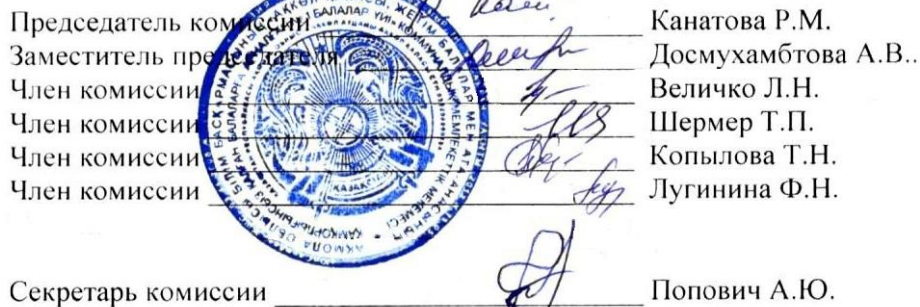 Председатель комиссии Канатова Р.М.
Заместитель председателя Досмухамбтова А.В..
Член комиссии Величко Л.Н.
Член комиссии Шермер Т.П.
Член комиссии Копылова Т.Н.
Член комиссии Лугинина Ф.Н.
Секретарь комиссии Попович А.Ю.